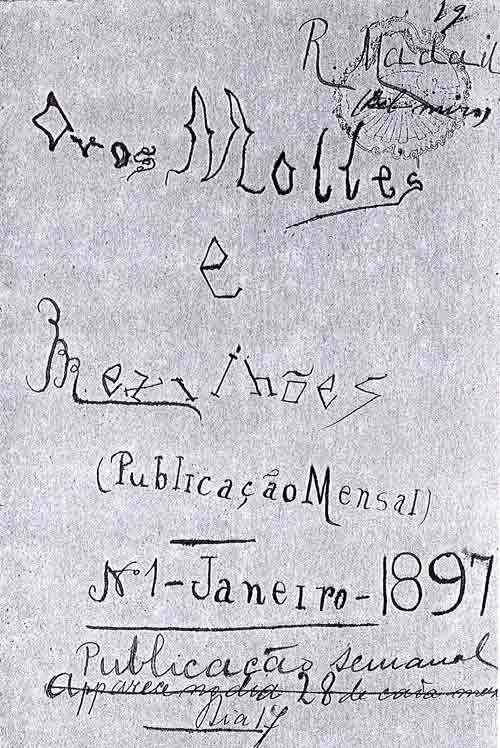 19
R. Madail
(Belmiro)
Ovos Molles
e
Mezilhões
(Publicação Mensal)
Nº 1 - Janeiro - 1897
Publicação semanal
Apparece no dia 28 de cada mez
Dia 17